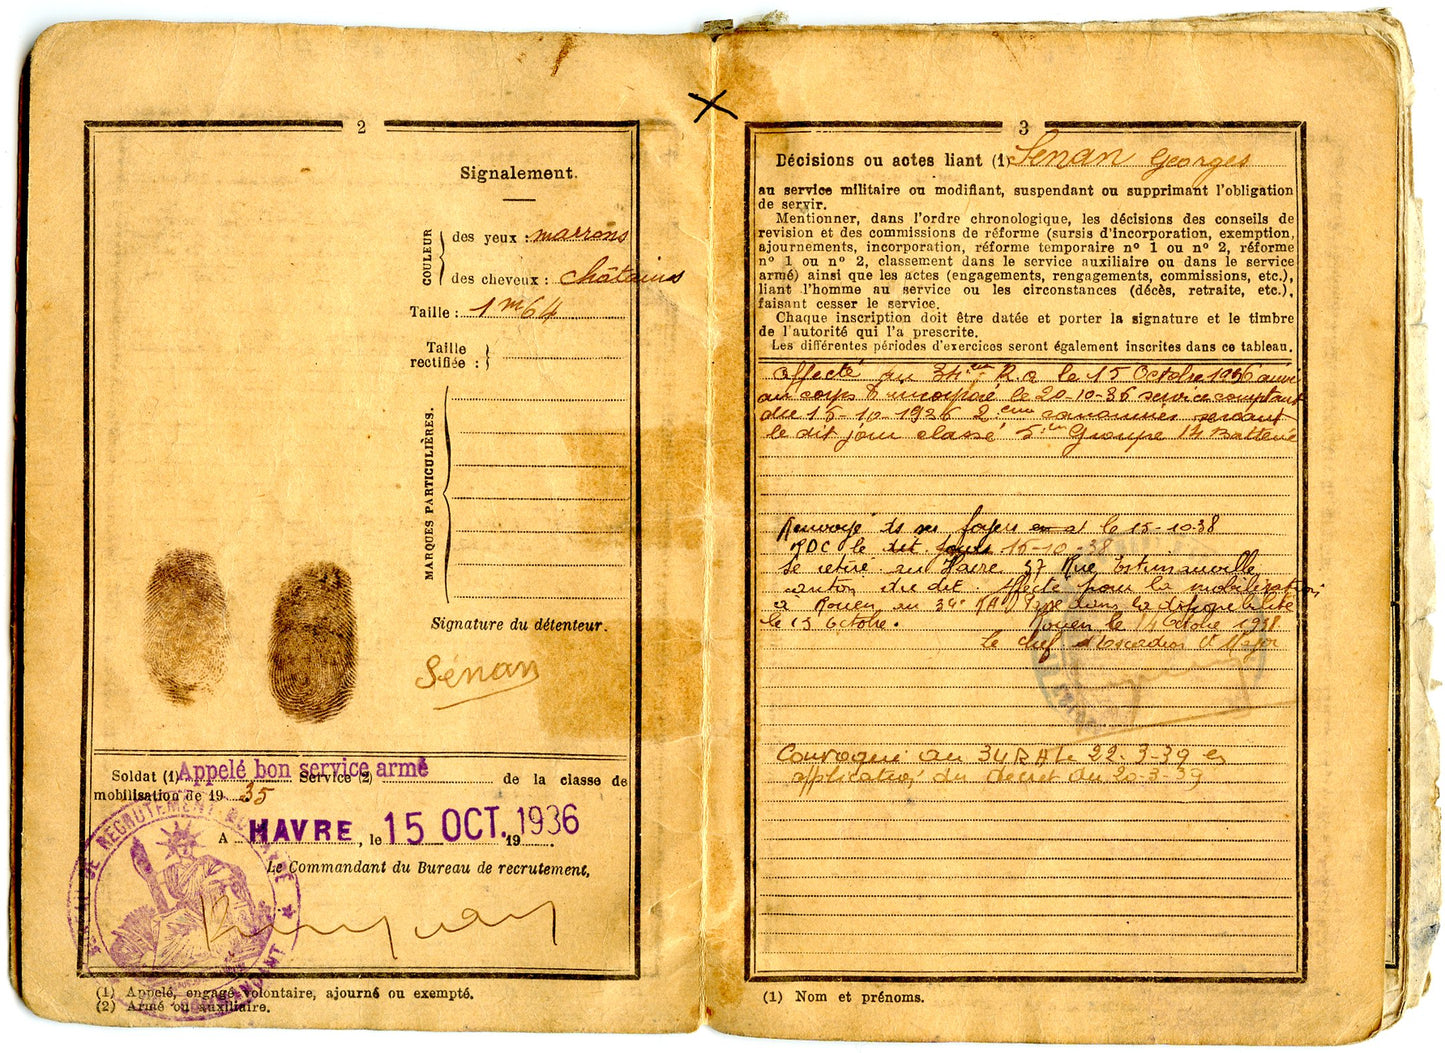 2
Signalement.
COULEUR
des yeux : marrons
des cheveux : châtains
Taille : 1m64
Taille
rectifiée :
MARQUES PARTICULIÈRES.
Signature du détenteur.
Sénan
Soldat (1) Appelé bon service armé Service (2) de la classe de
mobilisation de 19 35
A HAVRE, le 15 OCT. 19 1936
Le Commandant du Bureau de recrutement,
BUREAU DE RECRUTEMENT
COMMANDANT
(1) Appelé, engagé volontaire, ajourné ou exempté.
(2) Armé ou auxiliaire.
3
Décisions ou actes liant (1) Sénan Georges
au service militaire ou modifiant, suspendant ou supprimant l'obligation
de servir.
Mentionner, dans l'ordre chronologique, les décisions des conseils de
revision et des commissions de réforme (sursis d'incorporation, exemption,
ajournements, incorporation, réforme temporaire n° 1 ou n° 2, réforme
n° 1 ou n° 2, classement dans le service auxiliaire ou dans le service
armé) ainsi que les actes (engagements, rengagements, commissions, etc.),
liant l'homme au service ou les circonstances (décès, retraite, etc.),
faisant cesser le service.
Chaque inscription doit être datée et porter la signature et le timbre
de l'autorité qui l'a prescrite.
Les différentes périodes d'exercices seront également inscrites dans ce tableau.
Affecté au 34 R.A le 15 Octobre 1936
au corps & incorporé le 20-10-36 service comptant
du 15-10-1936 2eme canonnier servant
le dit jour classé 5 Groupe 14 Batterie
Renvoyé ds ses foyers le 15-10-38
RDC le dit jour 15-10-38
Se retire au Havre 37 Rue
canton du dit Affecté pour la mobilisation
à Rouen au 34e RA Passé dans la disponibilité
le 15 Octobre. Rouen le 14 Octobre 1938
Le chef d'Escadron Ct Major
Convoqué au 34 RA le 22-3-39 en
application du décret du 20-3-39
(1) Nom et prénoms.